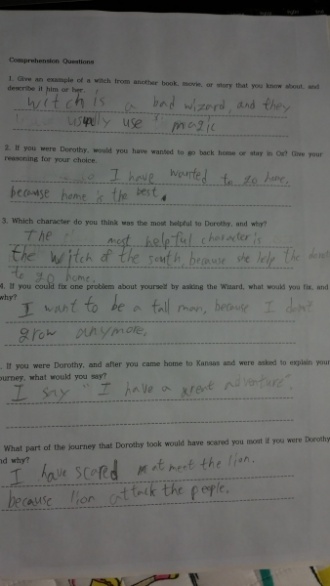 Comprehension Questions
1. Give an example of a witch from another book, movie, or story that you know about, and
describe it him or her.
witch is a bad wizard, and they
usually use magic
2. If you were Dorothy, would you have wanted to go back home or stay in Oz? Give your
reasoning for your choice.
I have wanted to go home,
because home is the best.
3. Which character do you think was the most helpful to Dorothy, and why?
The most helpful character is
the witch of the south, because she help the
to go home.
4. If you could fix one problem about yourself by asking the Wizard, what would you fix, and
why?
I want to be a tall man, because I don't
grow anymore.
. If you were Dorothy, and after you came home to Kansas and were asked to explain your
ourney, what would you say?
I say "I have a great adventure".
What part of the journey that Dorothy took would have scared you most if you were Dorothy
nd why?
I have scared meet the lion.
because lion attack the people.